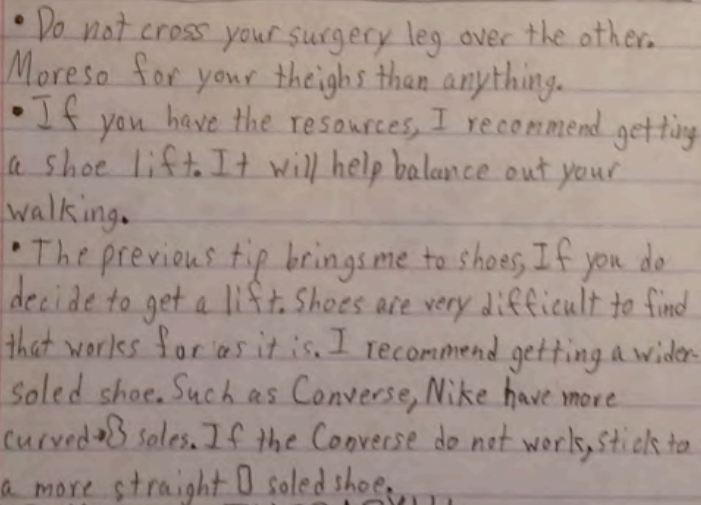 • Do not cross your surgery leg over the other.
Moreso for your theighs than anything.
• If you have the resources, I recommend getting
a shoe lift. It will help balance out your
walking.
• The previous tip brings me to shoes, If you do
decide to get a lift. Shoes are very difficult to find
that works for us it is. I recommend getting a wider-
soled shoe. Such as Converse, Nike have more
curved→ soles. If the Converse do not work, stick to
a more straight soled shoe.